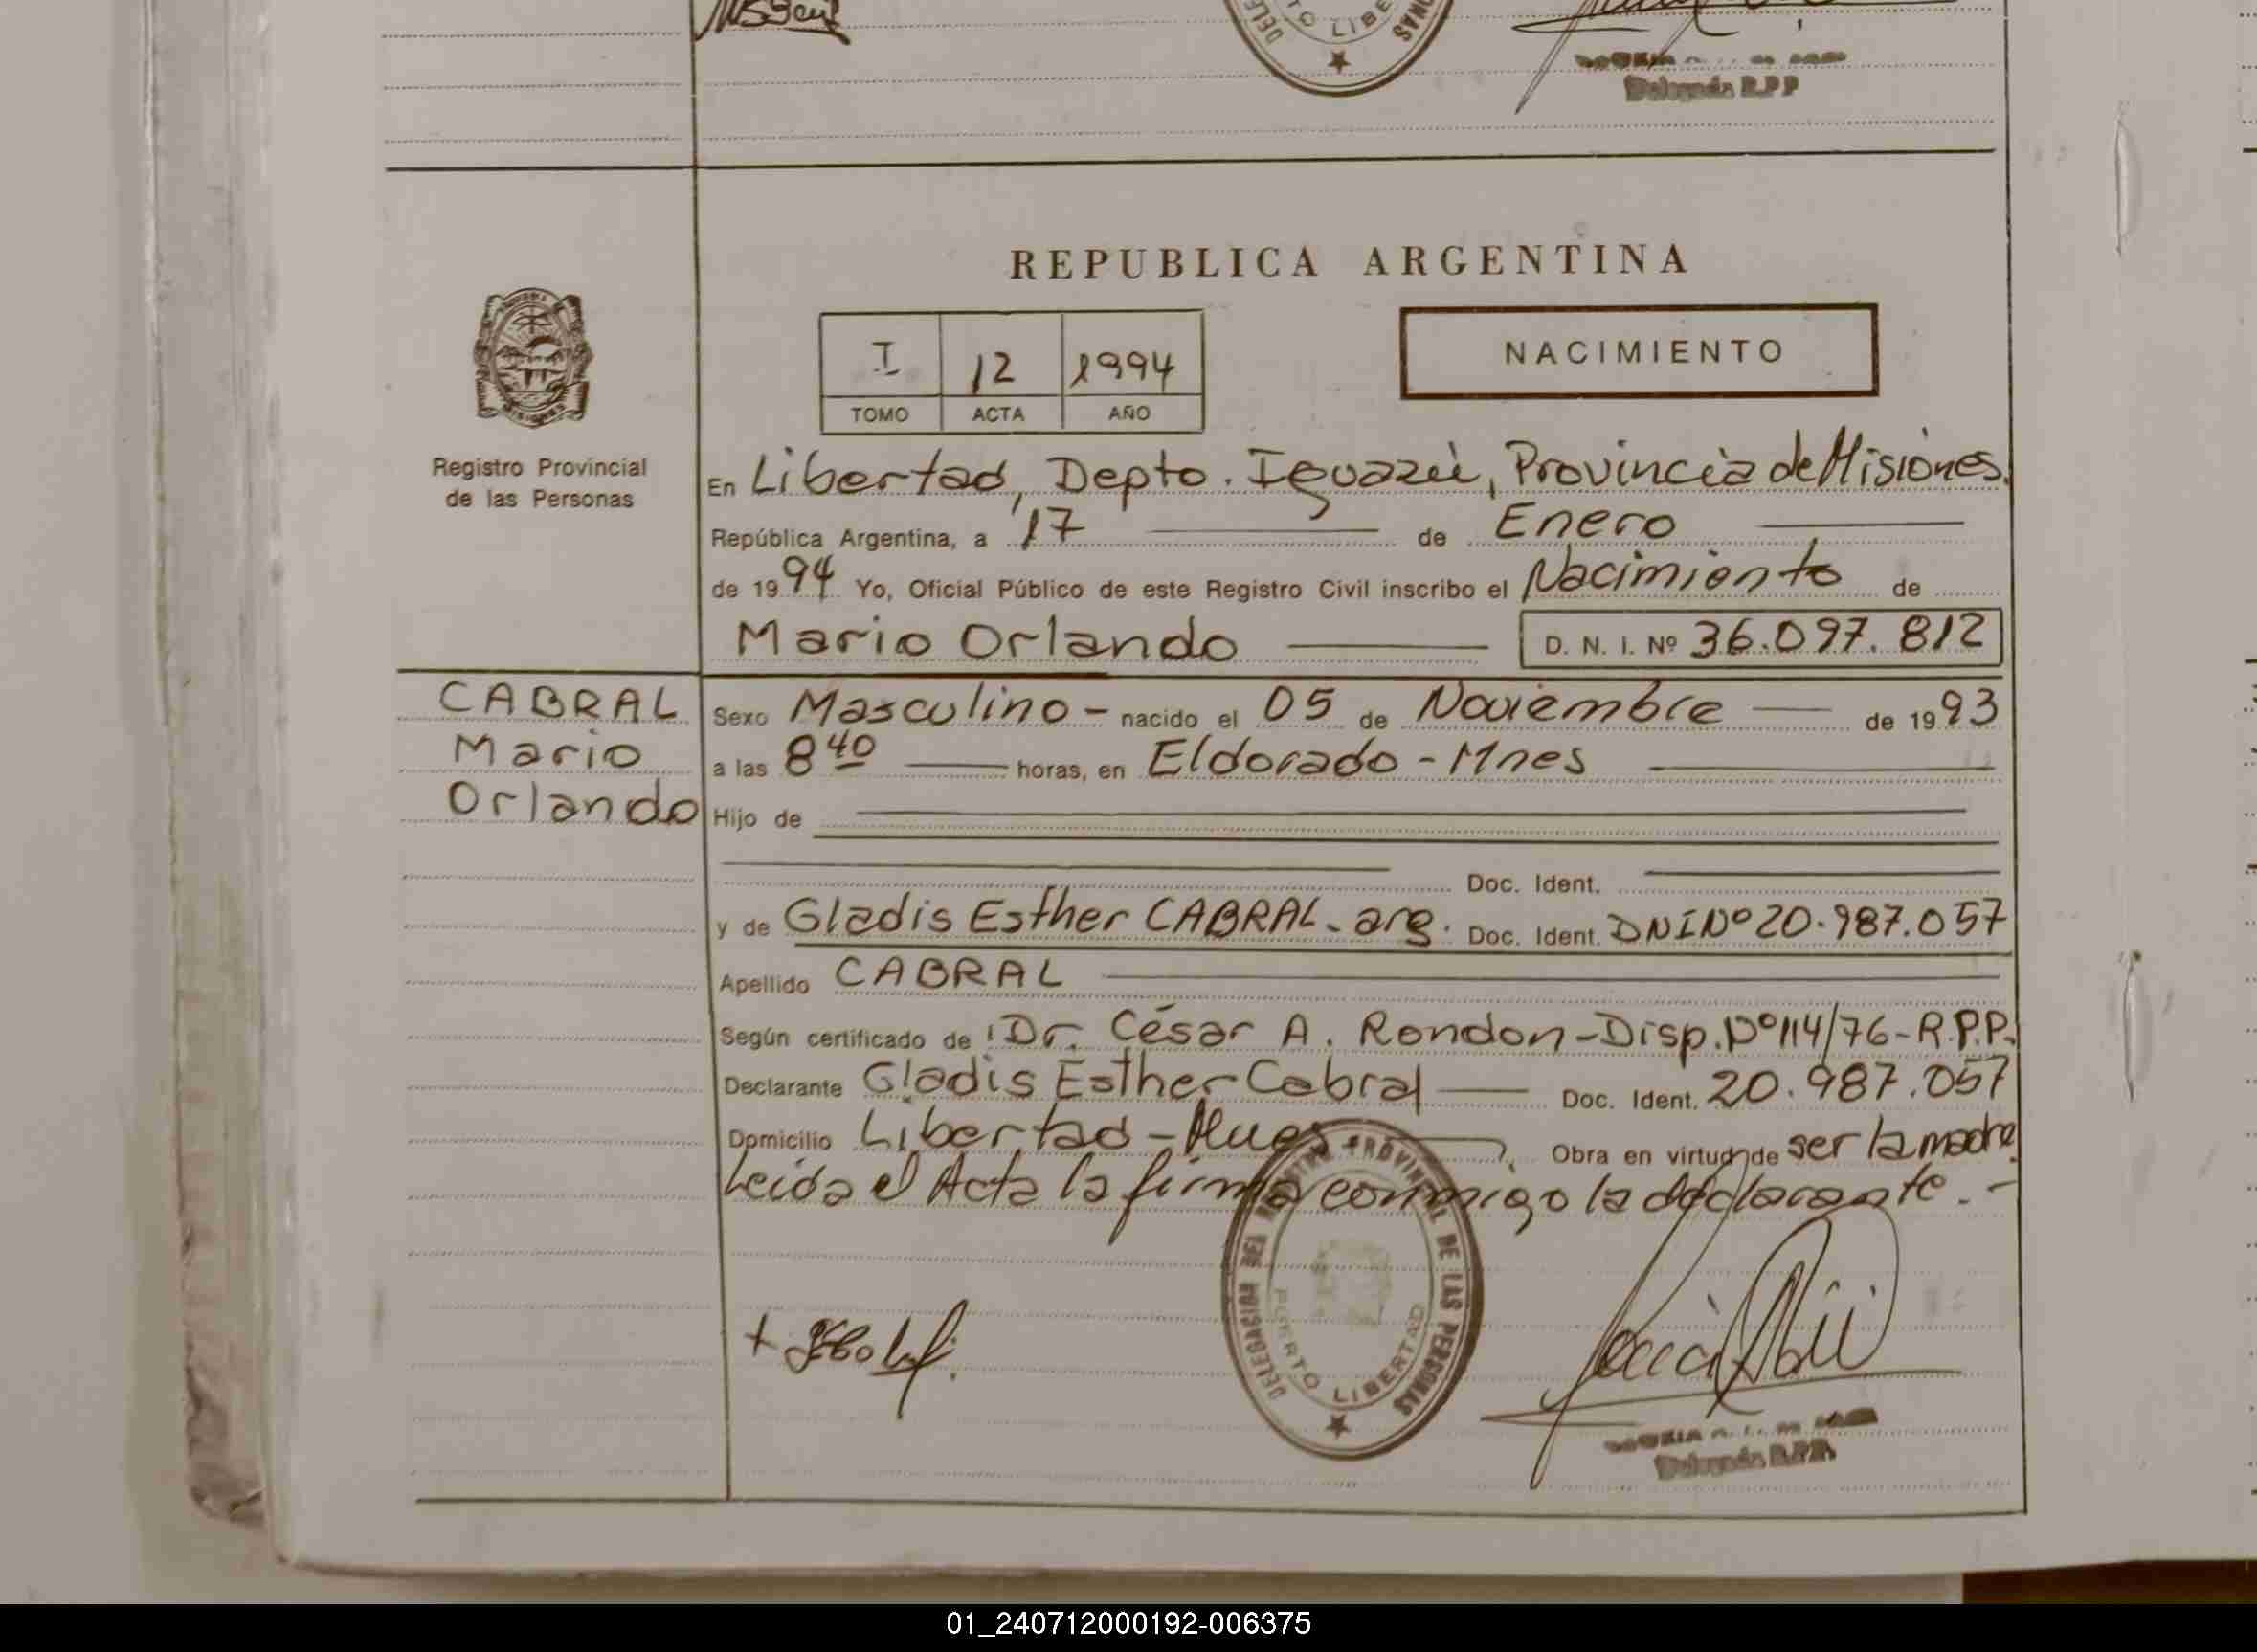 PUERTO LIBERTAD
DELEGACION PERSONAS
Delegada R.P.P
REPUBLICA ARGENTINA
MISIONES
I 12 1994
TOMO ACTA AÑO
NACIMIENTO
Registro Provincial
de las Personas
En Libertad, Depto. Iguazú, Provincia de Misiones.
República Argentina, a 17 de Enero
de 1994 Yo, Oficial Público de este Registro Civil inscribo el Nacimiento de
Mario Orlando D. N. I. Nº 36.097.812
CABRAL
Mario
Orlando
Sexo Masculino - nacido el 05 de Noviembre de 1993
a las 8 40 horas, en Eldorado - Mnes
Hijo de
Doc. Ident.
y de Gladis Esther CABRAL - arg. Doc. Ident. DNI Nº 20.987.057
Apellido CABRAL
Según certificado de Dr. César A. Rondon - Disp. Nº 114/76 - R.P.P.
Declarante Gladis Esther Cabral Doc. Ident. 20.987.057
Domicilio Libertad - Mnes, Obra en virtud de ser la madre
Leida el Acta la firma conmigo la declarante. -
DELEGACION DEL REGISTRO PROVINCIAL DE LAS PERSONAS
PUERTO LIBERTAD
Delegada R.P.P.
01_240712000192-006375